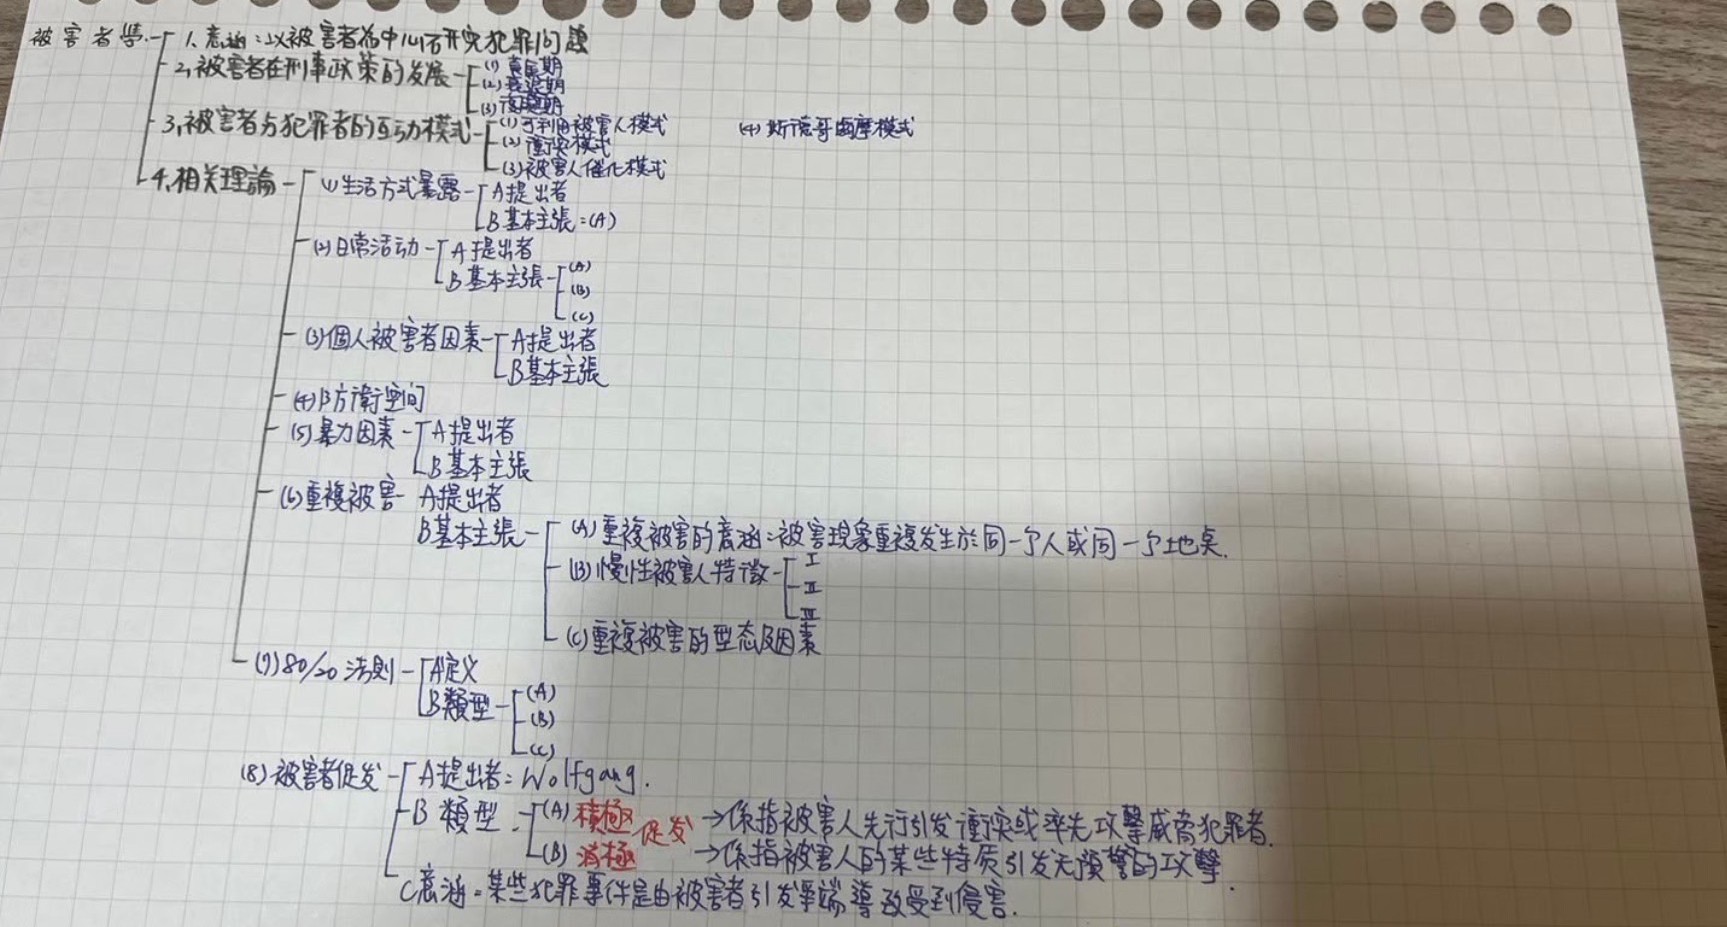 被害者學
1、意涵：以被害者為中心研究犯罪问題
2、被害者在刑事政策的发展
(1) 黃金期
(2) 衰退期
(3) 復甦期
3、被害者与犯罪者的互动模式
(1) 可利用被害人模式
(2) 衝突模式
(3) 被害人催化模式
(4) 斯德哥爾摩模式
4、相关理論
(1) 生活方式暴露
A 提出者
B 基本主張：(A)
(2) 日常活动
A 提出者
B 基本主張
(A)
(B)
(C)
(3) 個人被害者因素
A 提出者
B 基本主張
(4) 防衛空间
(5) 暴力因素
A 提出者
B 基本主張
(6) 重複被害
A 提出者
B 基本主張
(A) 重複被害的意涵：被害現象重複发生於同一个人或同一个地桌.
(B) 慢性被害人特徵
I
II
III
(C) 重複被害的型态及因素
(7) 80/20 法則
A 定义
B 類型
(A)
(B)
(C)
(8) 被害者促发
A 提出者：Wolfgang.
B 類型
(A) 積極 促发 →係指被害人先行引发衝突或率先攻擊威脅犯罪者.
(B) 消極 →係指被害人的某些特质引发无預警的攻擊.
C 意涵：某些犯罪事件是由被害者引发爭端導致受到侵害.